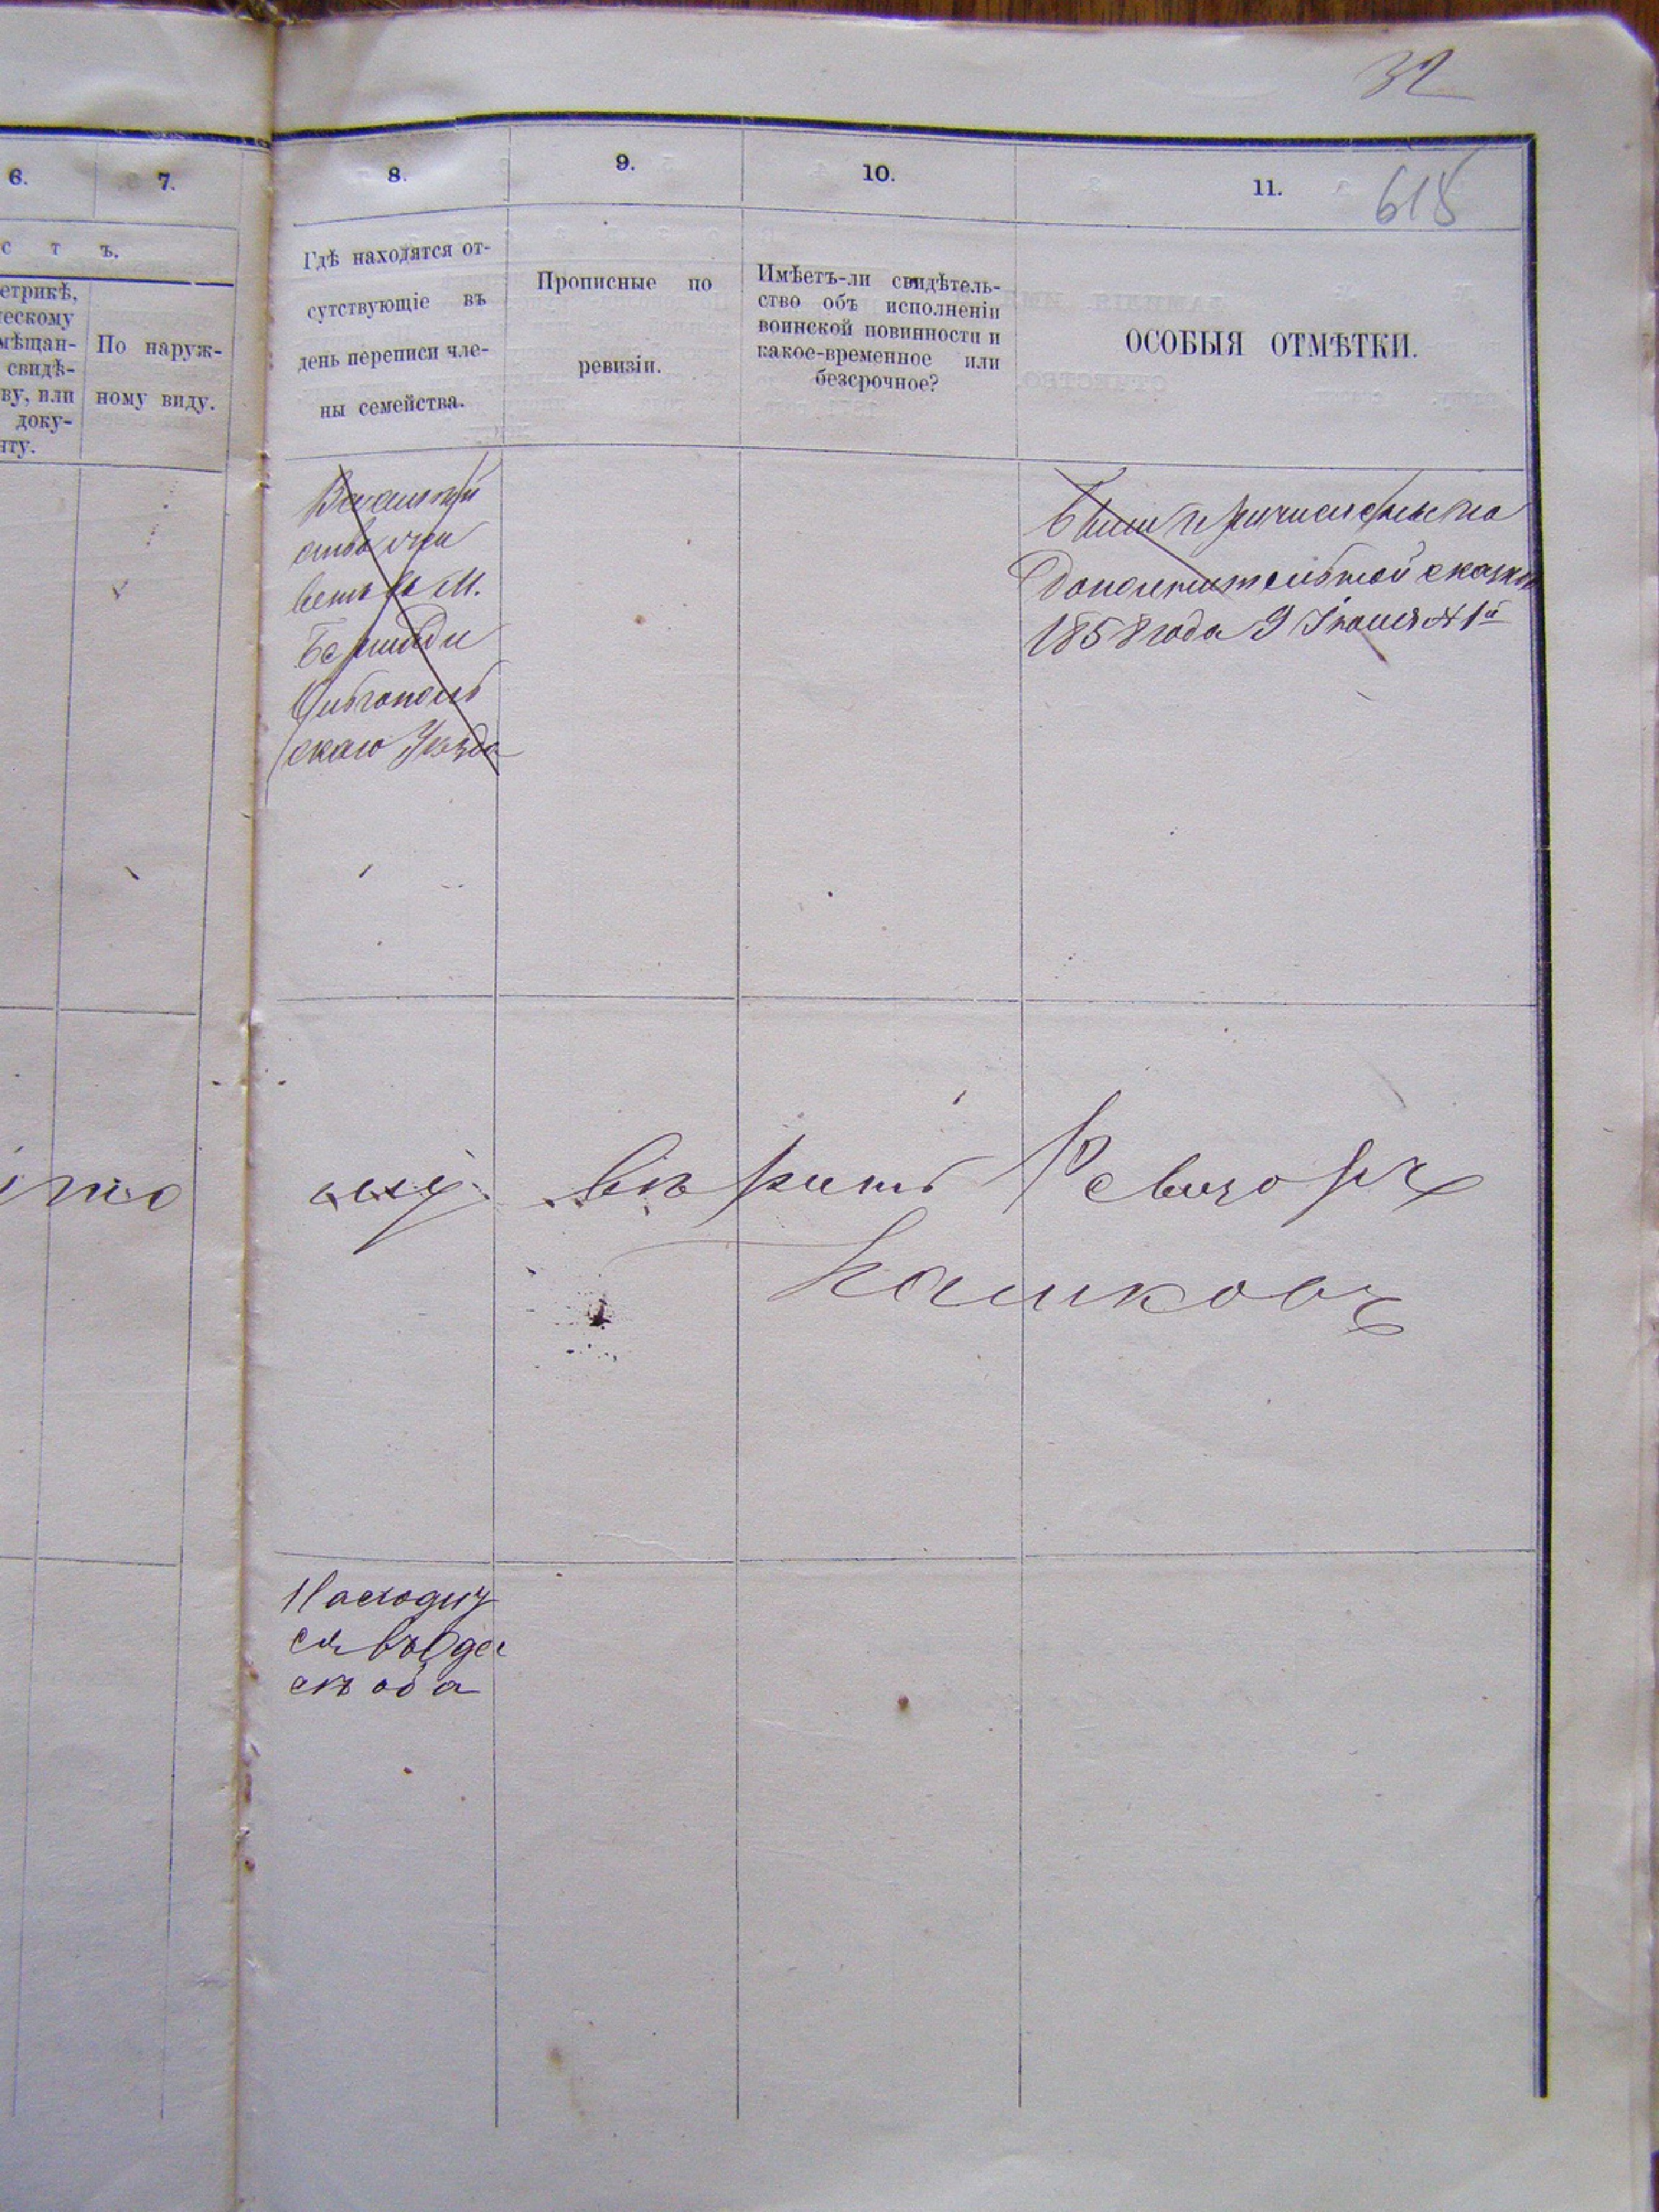 32
6.
7.
8.
9.
10.
11.
618
с т ъ.
етрикѣ,
ческому
мѣщан-
свидѣ-
ву, или
доку-
нту.
По наруж-
ному виду.
Гдѣ находятся от-
сутствующіе въ
день переписи чле-
ны семейства.
Прописные по
ревизіи.
Имѣетъ-ли свидѣтель-
ство объ исполненіи
воинской повинности и
какое-временное или
безсрочное?
ОСОБЫЯ ОТМѢТКИ.
въ М.
Бершади
Ольгополь
скаго Уѣзда
Были причислены по
дополнительной сказкѣ
1858 года 9 Іюля № 1й
вѣрить Ревизоръ
Кашковъ
Находит
ся въ Оде